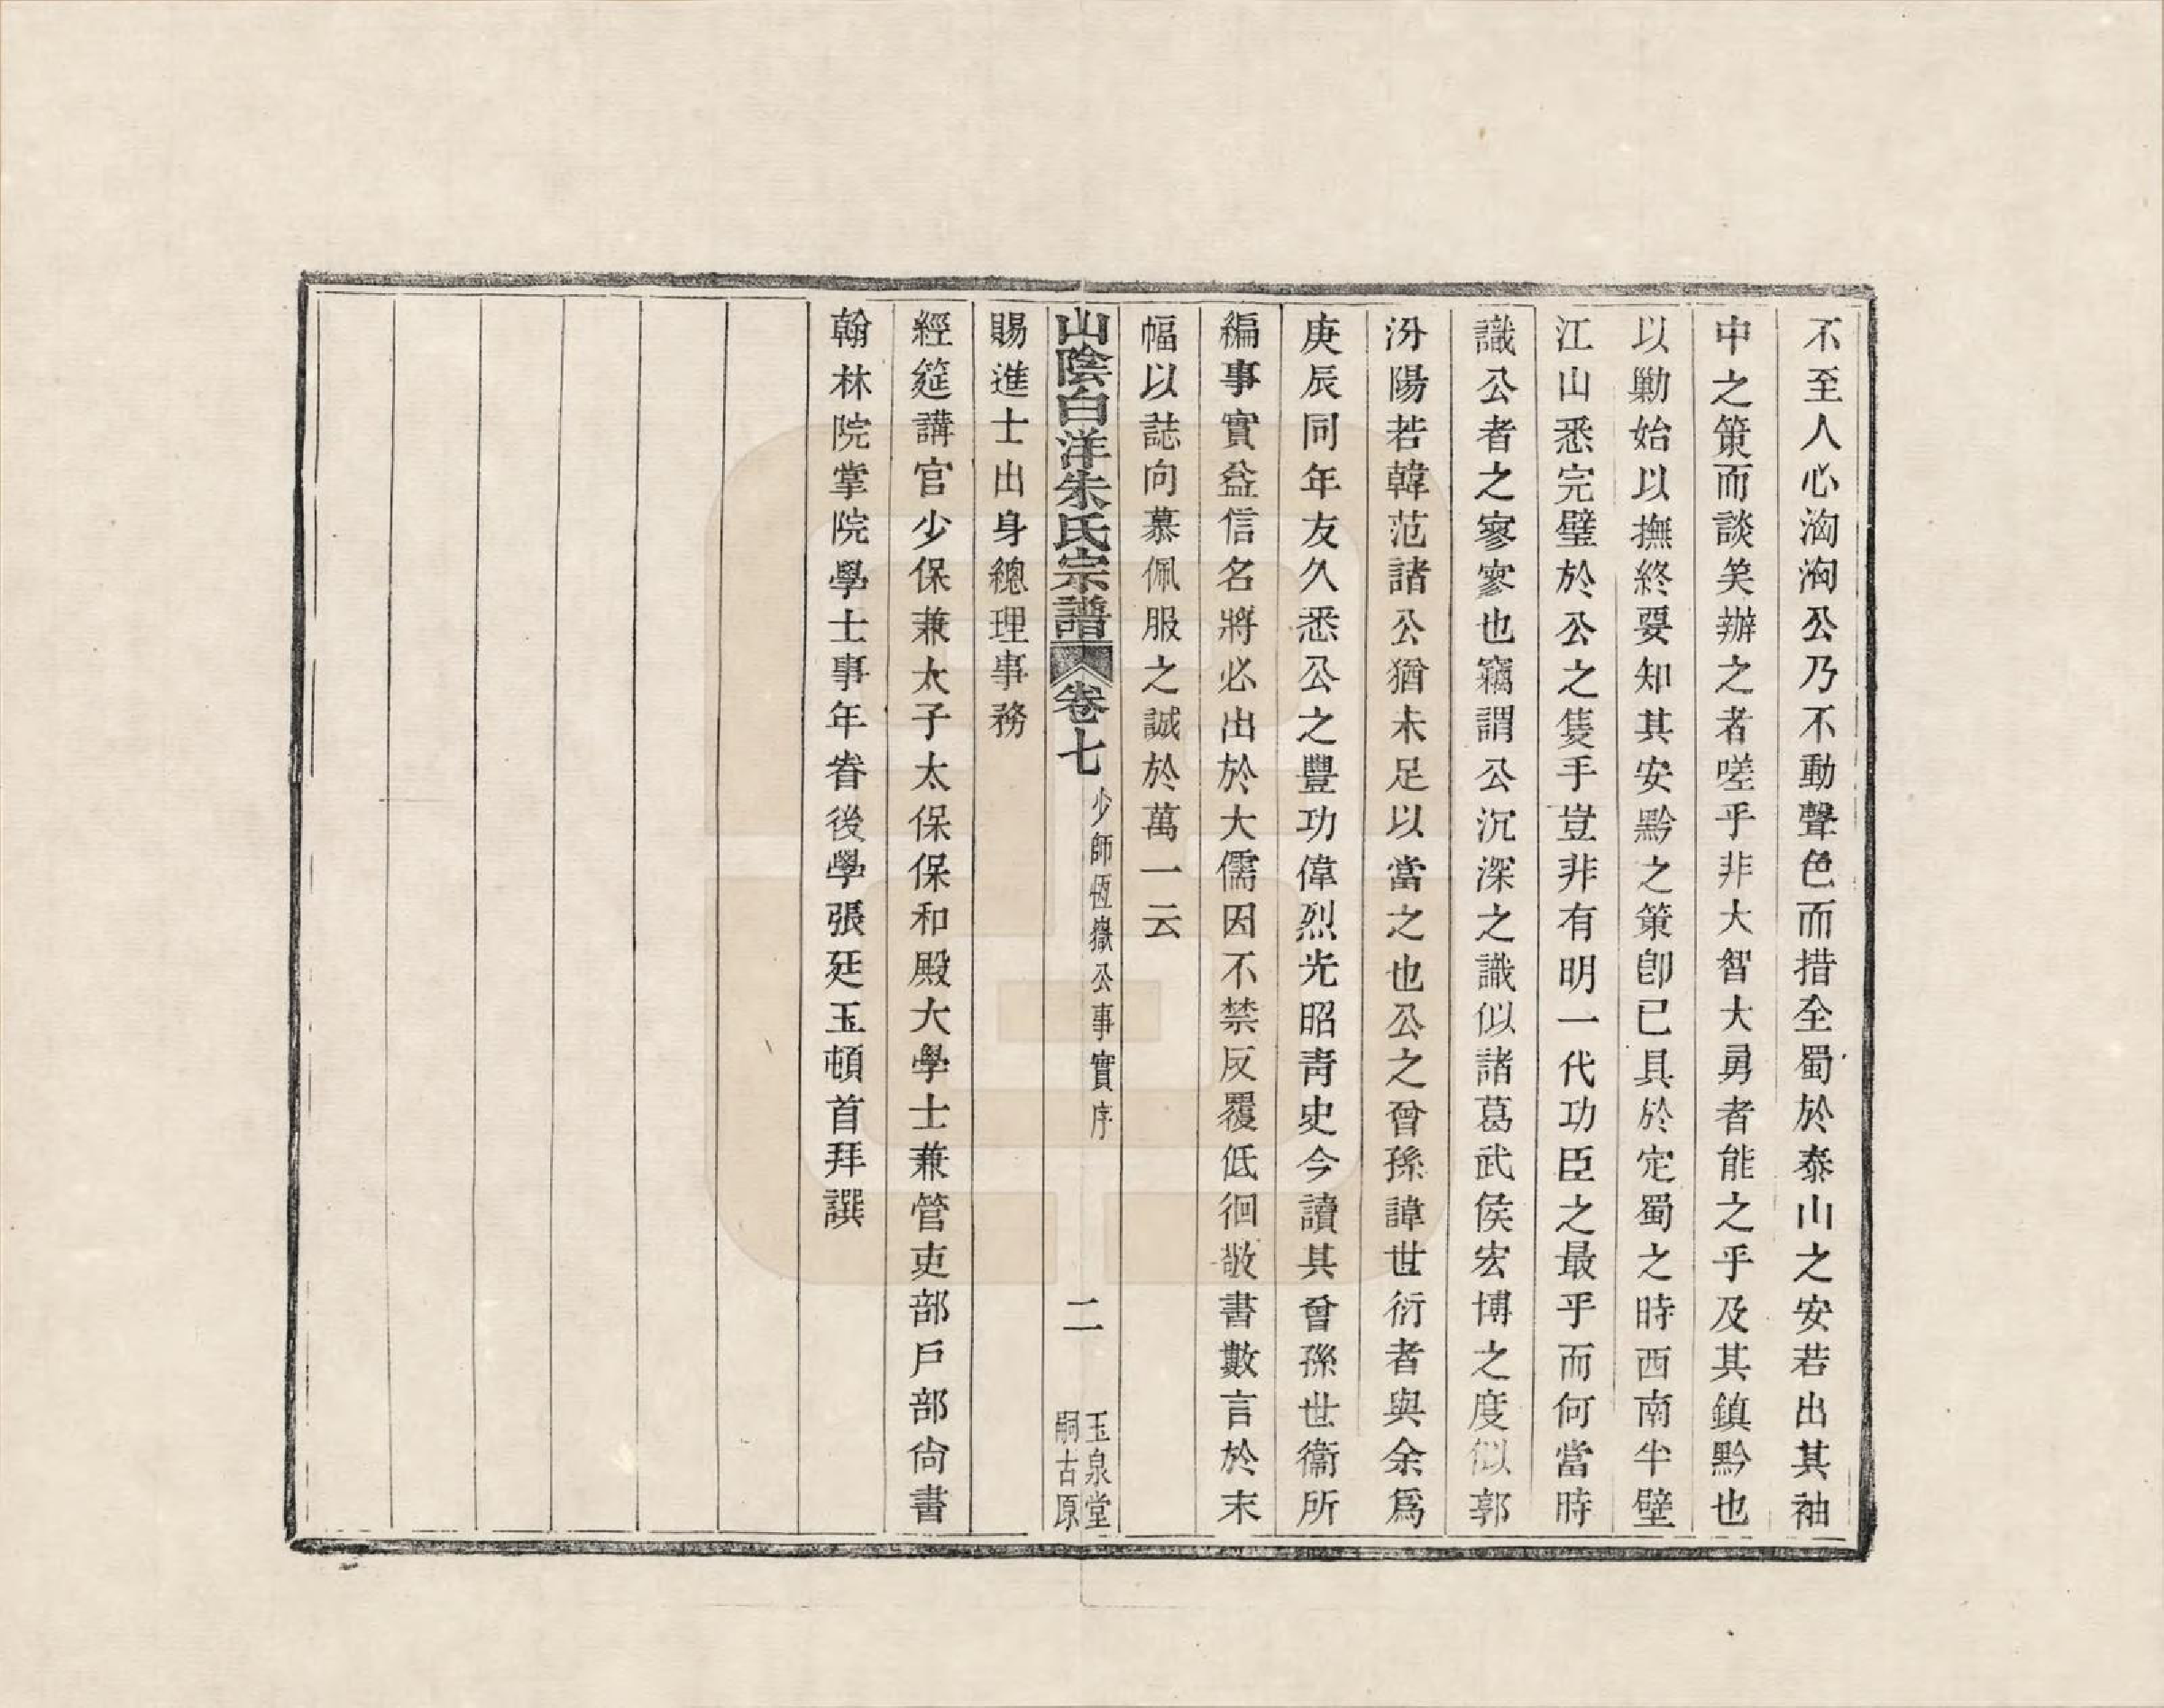 不至人心洶洶公乃不動聲色而措全蜀於泰山之安若出其袖
中之策而談笑辦之者嗟乎非大智大勇者能之乎及其鎮黔也
以勦始以撫終要知其安黔之策卽已具於定蜀之時西南半壁
江山悉完璧於公之隻手豈非有明一代功臣之最乎而何當時
識公者之寥寥也竊謂公沉深之識似諸葛武侯宏博之度似郭
汾陽若韓范諸公猶未足以當之也公之曾孫諱世衍者與余爲
庚辰同年友久悉公之豐功偉烈光昭靑史今讀其曾孫世衞所
編事實益信名將必出於大儒因不禁反覆低徊敬書數言於末
幅以誌向慕佩服之誠於萬一云
山陰白洋朱氏宗譜 卷七
少師恆嶽公事實序
二
玉泉堂
嗣古原
賜進士出身總理事務
經筵講官少保兼太子太保保和殿大學士兼管吏部戶部尙書
翰林院掌院學士事年眷後學張廷玉頓首拜譔